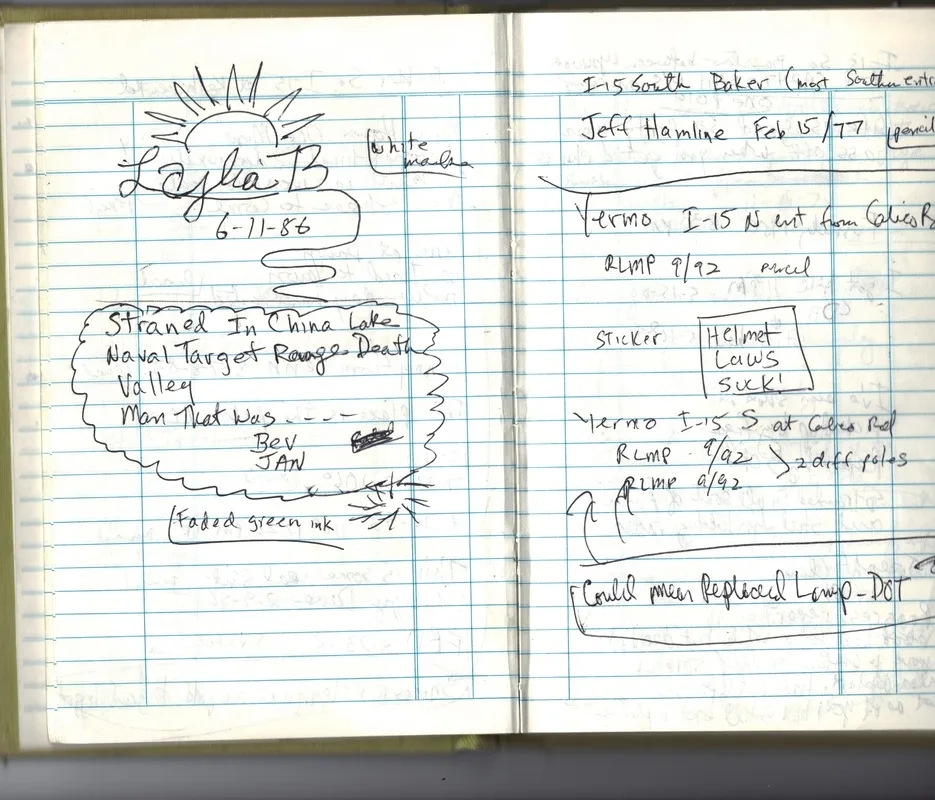 B
White
6-11-86
Straned In China Lake
Naval Target Range Death
Valley
Man That Was - - -
Bev
JAN
Faded green ink
I-15 South Baker (most Southern
Jeff Hamline Feb 15/77 pencil
Yermo I-15 N ent from Calico
RLMP 9/92
Sticker
Helmet
Laws
Suck!
Yermo I-15 S at Calico Rd
RLMP 9/92
2 diff poles
RLMP 9/92
Could mean Replaced Lamp-DOT